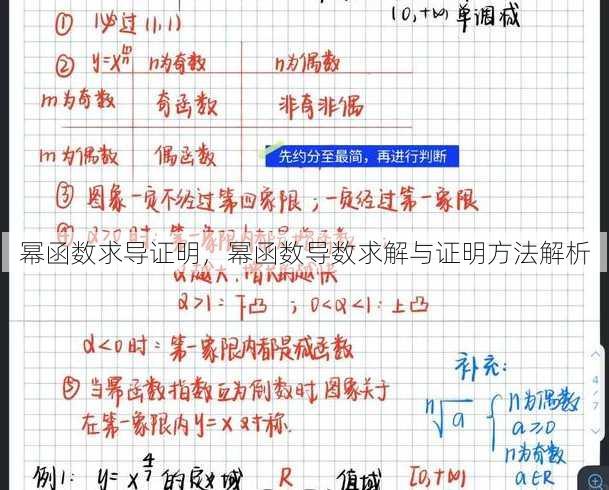 [0,+∞)单调减
① 必过(1,1)
② y=x^{m/n} n为奇数 n为偶数
m为奇数 奇函数 非奇非偶
m为偶数 偶函数
先约分至最简，再进行判断
③ 图象一定不经过第四象限；一定经过第一象限
幂函数求导证明，幂函数导数求解与证明方法解析
α>1：下凸；0<α<1：上凸
α<0时：第一象限内都是减函数
补充：
⑤ 当幂函数指数互为倒数时，图象关于
在第一象限内y=x对称.
ⁿ√a { n为偶数 a≥0
n为奇数 a∈R
4/7
例1：y=x^{4/7}的定义域 R 值域 [0,+∞)